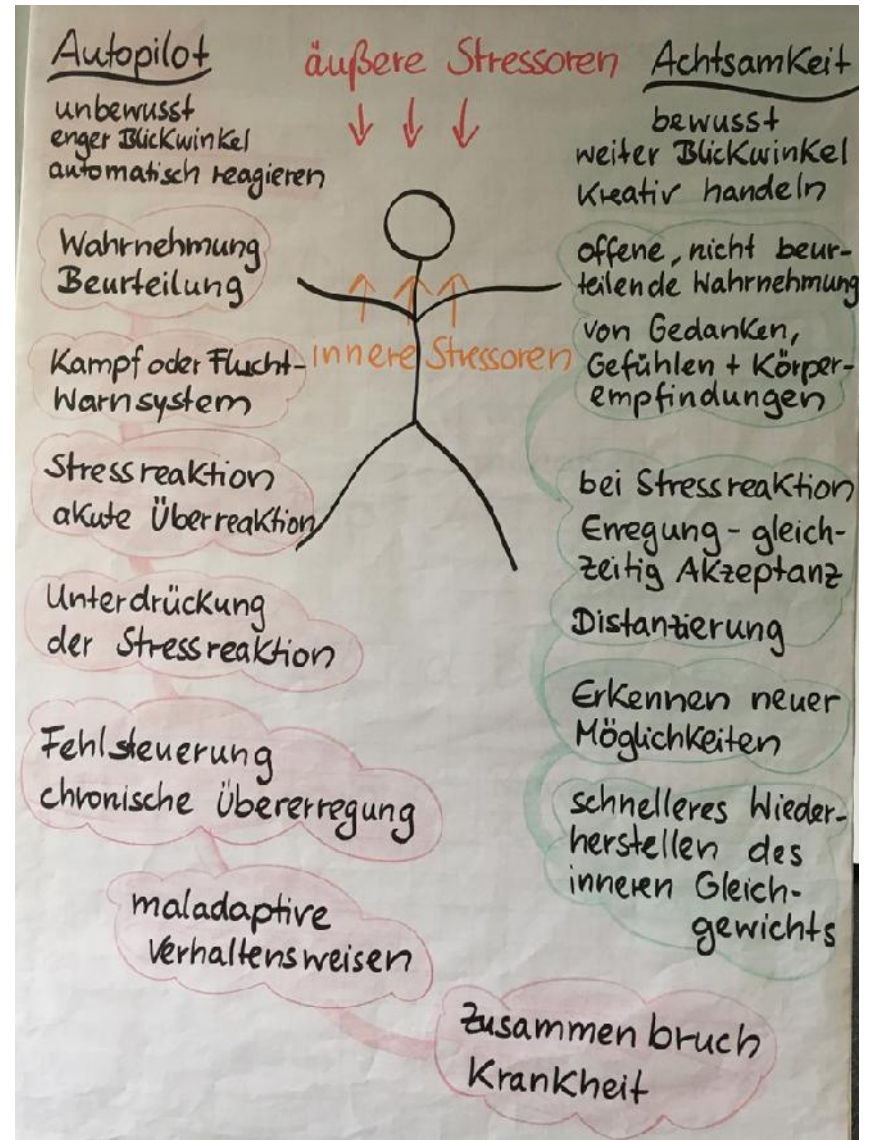 Autopilot
unbewusst
enger Blickwinkel
automatisch reagieren
Wahrnehmung
Beurteilung
Kampf oder Flucht-
Warnsystem
Stressreaktion
akute Überreaktion
Unterdrückung
der Stressreaktion
Fehlsteuerung
chronische Übererregung
maladaptive
Verhaltensweisen
Zusammenbruch
Krankheit
äußere Stressoren
innere Stressoren
Achtsamkeit
bewusst
weiter Blickwinkel
Kreativ handeln
offene, nicht beur-
teilende Wahrnehmung
von Gedanken,
Gefühlen + Körper-
empfindungen
bei Stressreaktion
Erregung - gleich-
zeitig Akzeptanz
Distanzierung
Erkennen neuer
Möglichkeiten
schnelleres Wieder-
herstellen des
inneren Gleich-
gewichts